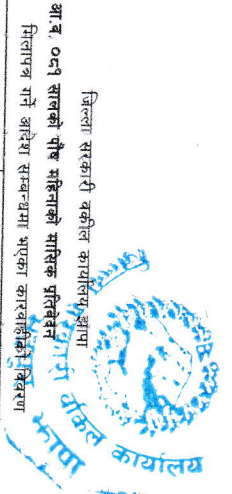 जिल्ला सरकारी वकील कार्यालय झापा
आ.व. ०८१ सालको पौष महिनाको मासिक प्रतिवेदन
मिलापत्र गर्ने आदेश सम्बन्धमा भएका कारवाहीको विवरण
वकिल कार्यालय
झापा